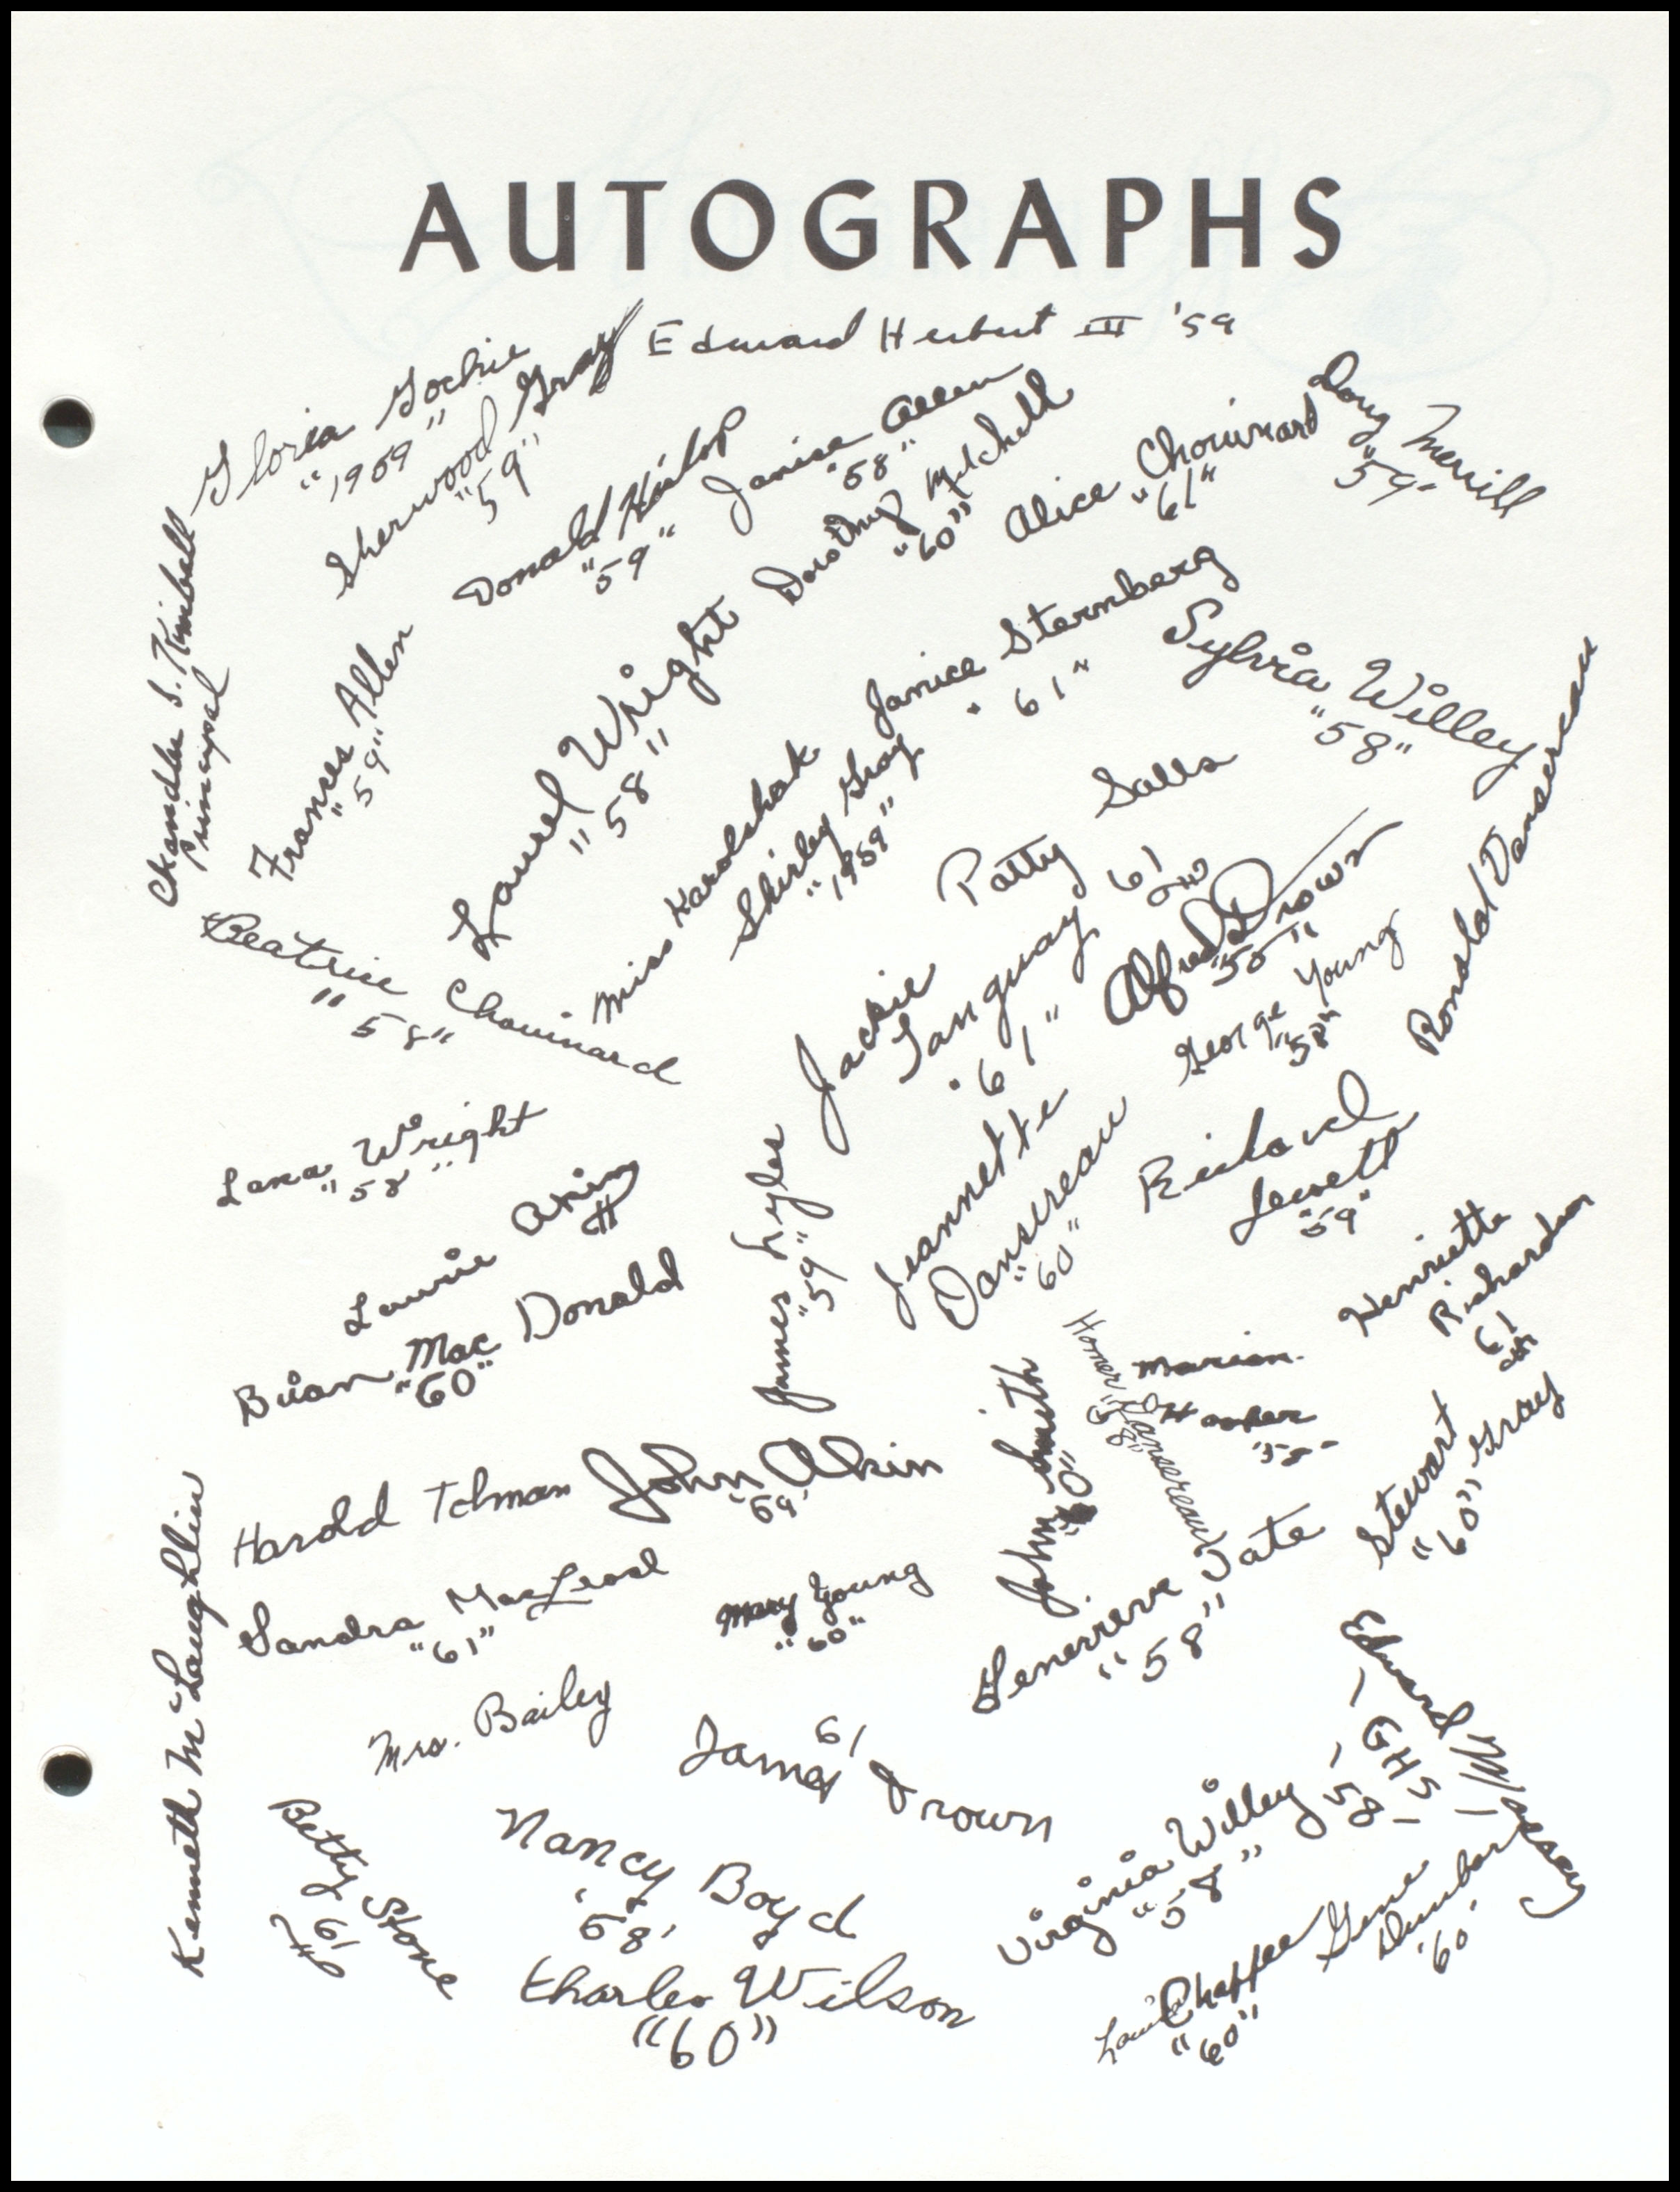 AUTOGRAPHS
Edward Herbert III '59
Gloria Gochie
"1959"
Sherwood Gray
"59"
Donald Hislop
"59"
Janice Allen
"58"
Dorothy Mitchell
"60"
Alice Chouinard
"61"
Doug Merrill
"59"
Chandler S. Kimball
Principal
Frances Allen
"59"
Laurel Wright
"58"
Janice Sternberg
"61"
Sylvia Willey
"58"
Miss Karolshak
Shirley Gray
"1959"
Patty Salls
61
GHS
Ronald Dansereau
Beatrice Chouinard
"58"
Jackie Tanguay
"61"
Alfred Drown
"58"
George Young
"58"
Lana Wright
"58"
Laurie Akin
James Lyles
"59"
Jeannette
Dansereau
"60"
Richard
Levett
"59"
Henrietta
Richardson
61
Brian Mac Donald
"60"
Homer Dansereau
"58"
Marian
Hooker
John Smith
"60"
Stewart Gray
"60"
Harold Tolman
John Akin
'59'
Kenneth McLaughlin
Sandra MacLeod
"61"
Mary Young
"60"
Genevieve Tate
"58"
Edward Massey
- GHS -
- 58 -
Mrs. Bailey
61
James Drown
Virginia Willey
"58"
Betty Stone
61
Nancy Boyd
'58'
Gene
Dunbar
'60'
Charles Wilson
"60"
Chaffee
"60"